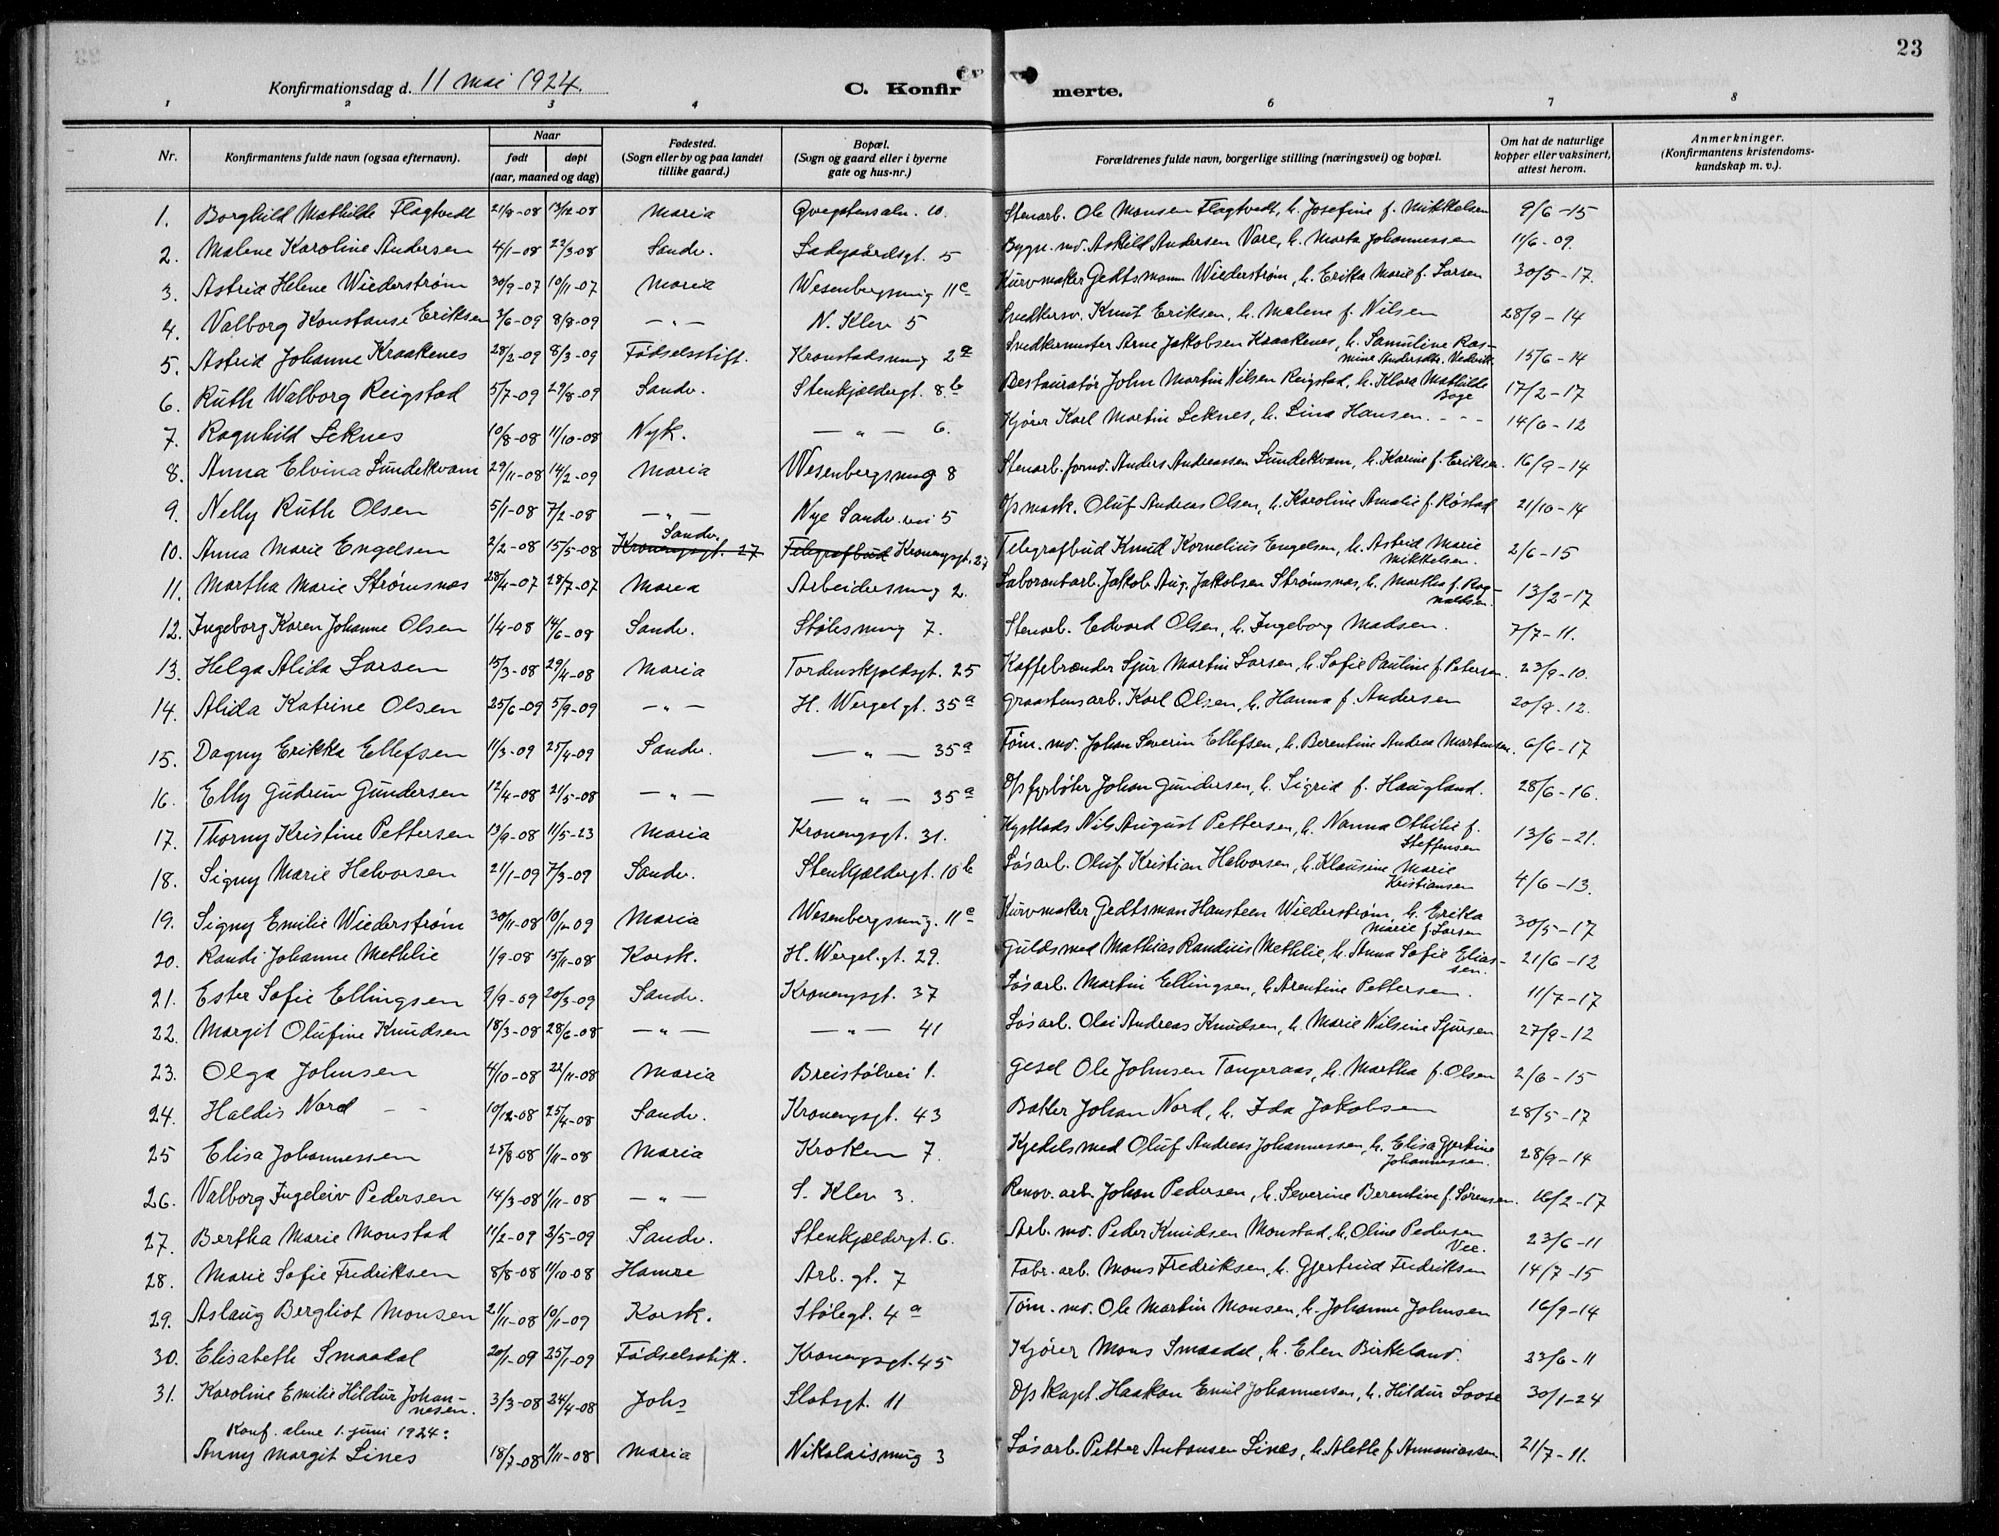 23
Konfirmationsdag d. 11 mai 1924.
C. Konfirmerte.
1 2 3 4 6 7 8
Nr. | Konfirmantens fulde navn (ogsaa efternavn). | Naar født | døpt (aar, maaned og dag) | Fødested. (Sogn eller by og paa landet tillike gaard.) | Bopæl. (Sogn og gaard eller i byerne gate og hus-nr.) | Forældrenes fulde navn, borgerlige stilling (næringsvei) og bopæl. | Om hat de naturlige kopper eller vaksinert, attest herom. | Anmerkninger. (Konfirmantens kristendoms-kundskap m. v.).
1. Borghild Mathilde Flagtvedt 21/8-08 13/12-08 Maria 10. Stenarb. Ole Monsen Flagtvedt, h. Josefine f. Mikkelsen 9/6-15
2. Malene Karoline Andersen 4/1-08 22/3-08 Sandv. Ladegaardsgt. 5 Bygn. md. Askild Andersen Vare, h. Marta Johannessen 11/6-09.
3. Astrid Helene Wiederstrøm 30/9-07 10/11-07 Maria Wesenbergsmug 11c Kurvmaker Gedtsmann Wiederstrøm, h. Erikka Marie f. Larsen 30/5-17.
4. Valborg Konstanse Eriksen 3/6-09 8/8-09 — " — N. Klev 5 Snedkersv. Knut Eriksen, h. Malene f. Nilsen 28/9-14
5. Astrid Johanne Kraakenes 28/2-09 8/3-09 Fødselsstift. Kronstadsmug 2a Snedkermester Arne Jakobsen Kraakenes, h. Samuline Rasmine Andersdtr. 15/6-14
6. Ruth Walborg Reigstad 5/7-09 29/8-09 Sandv. Stenkjeldergt. 8b Restauratør John Martin Nilsen Reigstad, h. Klara Mathilde Boge 17/2-17
7. Ragnhild Leknes 10/8-08 11/10-08 Nyk. — " — 6. Kjører Karl Martin Leknes, h. Lina Hansen. - - 14/6-12
8. Anna Elvina Sundekvam 29/11-08 14/2-09 Maria Wesenbergsmug 8 Stenarb. formd. Anders Andreassen Sundekvam, h. Karine f. Eriksen. 16/9-14
9. Nelly Ruth Olsen 5/1-08 7/2-08 — " — Nye Sandv. vei 5 Ds mask. Oluf Andreas Olsen, h. Karoline Amalie f. Røstad 21/10-14
10. Anna Marie Engelsen 2/2-08 15/5-08 Sandv. Kronengsgt. 27 Telegrafbud Kronengsgt. 27 Telegrafbud Knud Kornelius Engelsen, h. Astrid Marie Mikkelsen. 2/6-15
11. Martha Marie Strømsnes 28/4-07 28/7-07 Maria Arbeidersmug 2. Laborantarb. Jakob Aug. Jakobsen Strømsnes, h. Martha f. Ragnaldsen. 13/2-17
12. Ingeborg Karen Johanne Olsen 1/4-08 14/6-08 Sandv. Stølesmug 7. Stenarb. Edvard Olsen, h. Ingeborg Madsen. 7/7-11.
13. Helga Alida Larsen 15/3-08 29/4-08 Maria Tordenskjoldsgt. 25 Kaffebrænder Sjur Martin Larsen, h. Sofie Pauline f. Petersen. 23/9-10.
14. Alida Katrine Olsen 25/6-09 5/9-09 — " — H. Wergel.gt. 35a Graastensarb. Karl Olsen, h. Hanna f. Andersen 20/9-12.
15. Dagny Erikka Ellefsen 11/3-09 25/4-09 Sandv. — " — 35a Tøm. md. Johan Severin Ellefsen, h. Berentine Andrea Mortensen. 6/6-17
16. Elly Gudrun Gundersen 12/4-08 21/5-08 — " — — " — 35a Ds fyrbøter Johan Gundersen, h. Sigrid f. Haugland. 28/6-16.
17. Thorny Kristine Pettersen 13/9-08 11/5-23 Maria Kronengsgt. 31. Kystlods Nils August Pettersen, h. Nanna Othilie f. Steffensen 13/6-21.
18. Signy Marie Halvorsen 21/1-09 7/3-09 Sandv. Stenkjældergt. 10b Løsarb. Oluf Kristian Halvorsen, h. Klausine Marie Kristiansen 4/6-13.
19. Signy Emilie Wiederstrøm 30/11-08 10/1-09 Maria Wesenbergsmug. 11c Kurvmaker Gedtsman Hansteen Wiederstrøm, h. Erika Marie f. Larsen 30/5-17
20. Randi Johanne Methlie 1/9-08 15/11-08 Korsk. H. Wergel.gt. 29. Guldsmed Mathias Randinius Methlie, h. Anna Sofie Eliassen. 21/6-12
21. Ester Sofie Ellingsen 9/9-09 20/3-09 Sandv. Kronengsgt. 37 Løsarb. Martin Ellingsen, h. Arentine Pettersen. 11/7-17
22. Margit Olufine Knudsen 18/3-08 28/6-08 — " — — " — 41 Løsarb. Olai Andreas Knudsen, h. Marie Nilsine Sjursen 27/9-12
23. Olga Johnsen 4/10-08 22/11-08 Maria Breistølvei 1. Gesel Ole Johnsen Tangeraas, h. Martha f. Olsen 2/6-15
24. Haldis Nord - - 10/12-08 25/4-08 Sandv. Kronengsgt. 43 Baker Johan Nord, h. Ida Jakobsen 28/5-17
25 Elisa Johannessen 25/8-08 1/11-08 Maria Kroken 7. Kjedelsmed Oluf Andreas Johannessen, h. Elisa Gjertine Johannessen. 28/9-14
26. Valborg Ingeleiv Pedersen 14/3-08 1/11-08 — " — S. Klev 3. Renov. arb. Johan Pedersen, h. Severine Berentine f. Sørensen. 16/2-17
27. Bertha Marie Monstad 11/2-09 2/5-09 Sandv. Stenkjældergt. 6. Arb. md. Peder Knudsen Monstad, h. Oline Pedersen Vee. 23/6-11
28. Marie Sofie Fredriksen 8/8-08 11/10-08 Hamre Arb. gt. 7 Fabr. arb. Mons Fredriksen, h. Gjertrud Fredriksen 14/7-15
29. Aslaug Bergliot Monsen 21/11-08 10/1-09 Korsk. Stølegt. 4a Tøm. md. Ole Martin Monsen, h. Johanne Johnsen 16/9-14
30. Elisabeth Smaadal 20/1-09 25/1-09 Fødselsstift. Kronengsgt. 45 Kjører Mons Smaadal, h. Elen Birkeland. 23/6-11
31. Karoline Emilie Hildur Johannesen. 3/3-08 24/4-08 Johs Slotsgt. 11 Ds kapt. Haakon Emil Johannessen, h. Hildur Loose 30/1-24
Konf. alene 1. juni 1924:
Anny Margit Lines 18/7-08 1/11-08 Maria Nikolaismug 3 Løsarb. Petter Antonsen Lines, h. Alethe f. Annaniassen. 21/7-11.